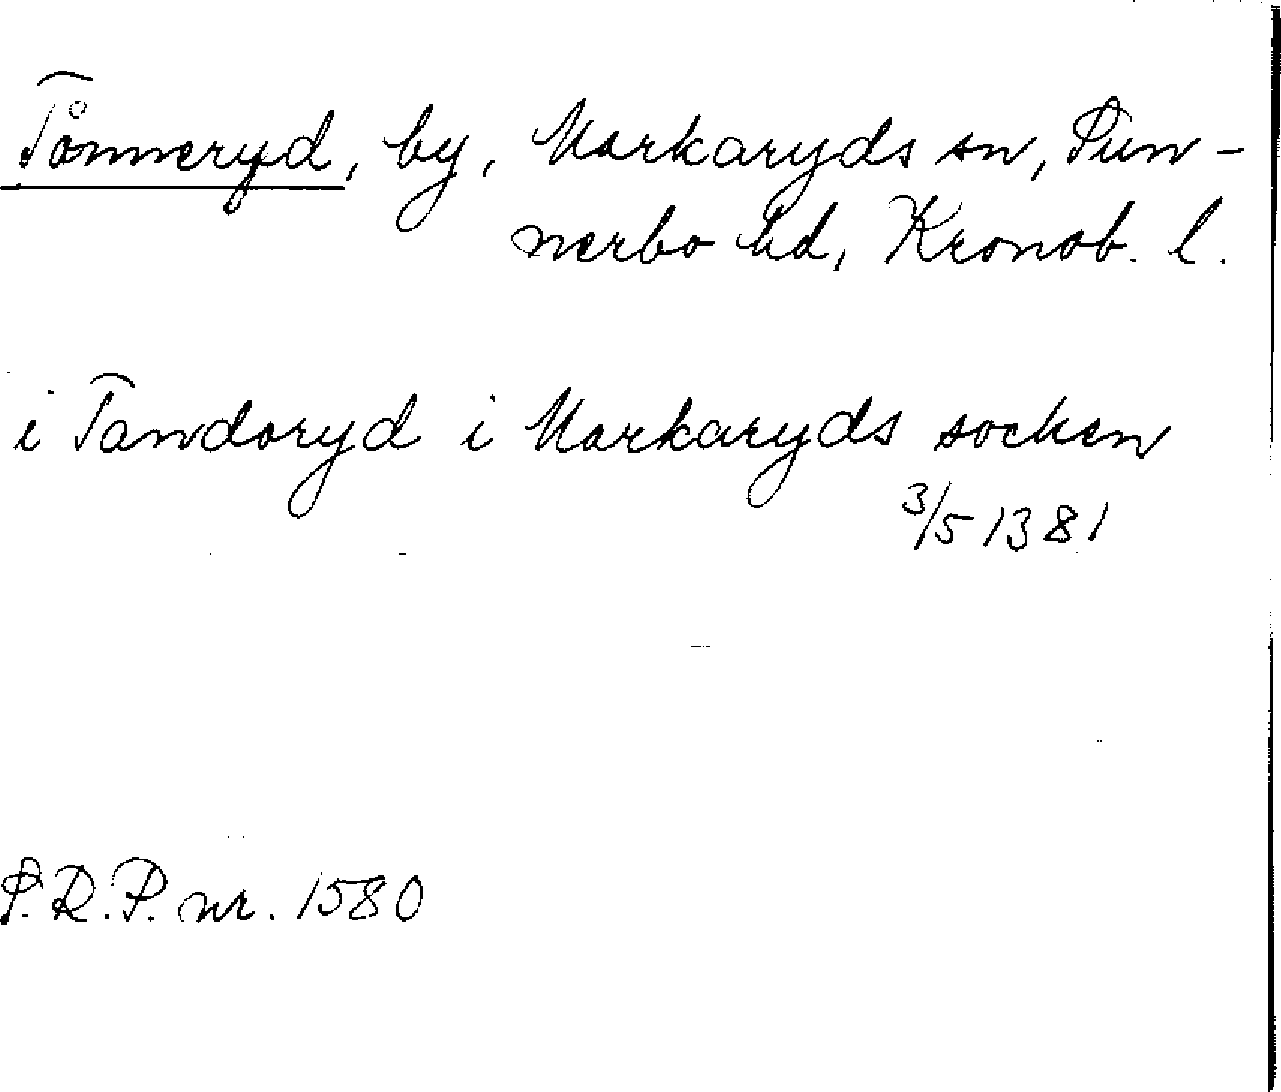 Tånneryd, by, Markaryds sn, Sun-
nerbo hd, Kronob. l.
i Tandoryd i Markaryds socken
3/5 1381
S.R.P. nr. 1580